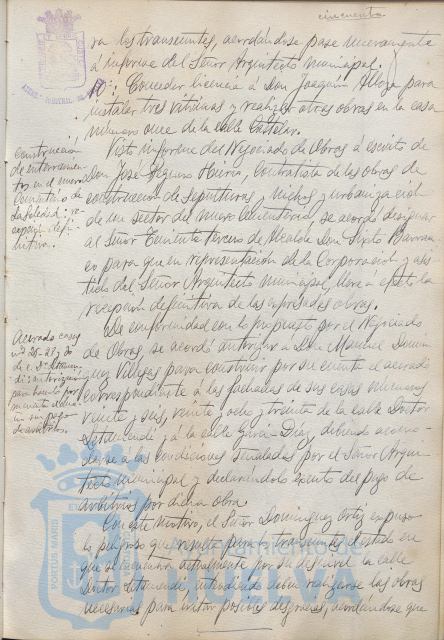 cincuenta
ra los transeuntes, acordándose pase nuevamente
á informe del Señor Arquitecto municipal.
10º: Conceder licencia á Don Joaquín para
instalar tres vitrinas y realizar otras obras en la casa
número once de la calle Castelar.
Visto informe del Negociado de Obras á escrito de
Don José contratista de las obras de
construcción de sepulturas, nichos y urbanización
de un sector del nuevo Cementerio, se acordó designar
al Señor Teniente Tercero de Alcalde Don Sixto
co para que en representación de la Corporación y asis-
tido del Señor Arquitecto municipal, lleve á efecto la
recepción definitiva de las expresadas obras.
De conformidad con lo propuesto por el Negociado
de Obras, se acordó autorizar á Don Manuel Domin-
guez Villegas para construir por su cuenta el acerado
correspondiente á las fachadas de sus casas números
veinte y seis, veinte y ocho y treinta de la calle Doctor
y á la calle García Díaz, debiendo acomo-
darse á las condiciones señaladas por el Señor Arqui-
tecto municipal y declarándolo exento del pago de
arbitrios por dicha obra.
Con este motivo, el Señor Dominguez Ortiz expuso
lo peligroso que resulta para los transeuntes el estado en
que se encuentra actualmente por su desnivel la calle
Doctor entendiendo deben realizarse las obras
necesarias para evitar posibles desgracias, acordándose que
construcción
de enterramien-
tos en el nuevo
Cementerio de
la Soledad: re-
cepción defi-
nitiva.
Acerado casas
nº 26-28 y 30
de c. Dr.
para hacerlo por
su cuenta
sin pago
de arbitrios.
Ayuntamiento de
HUELVA
PORTUS MARIS